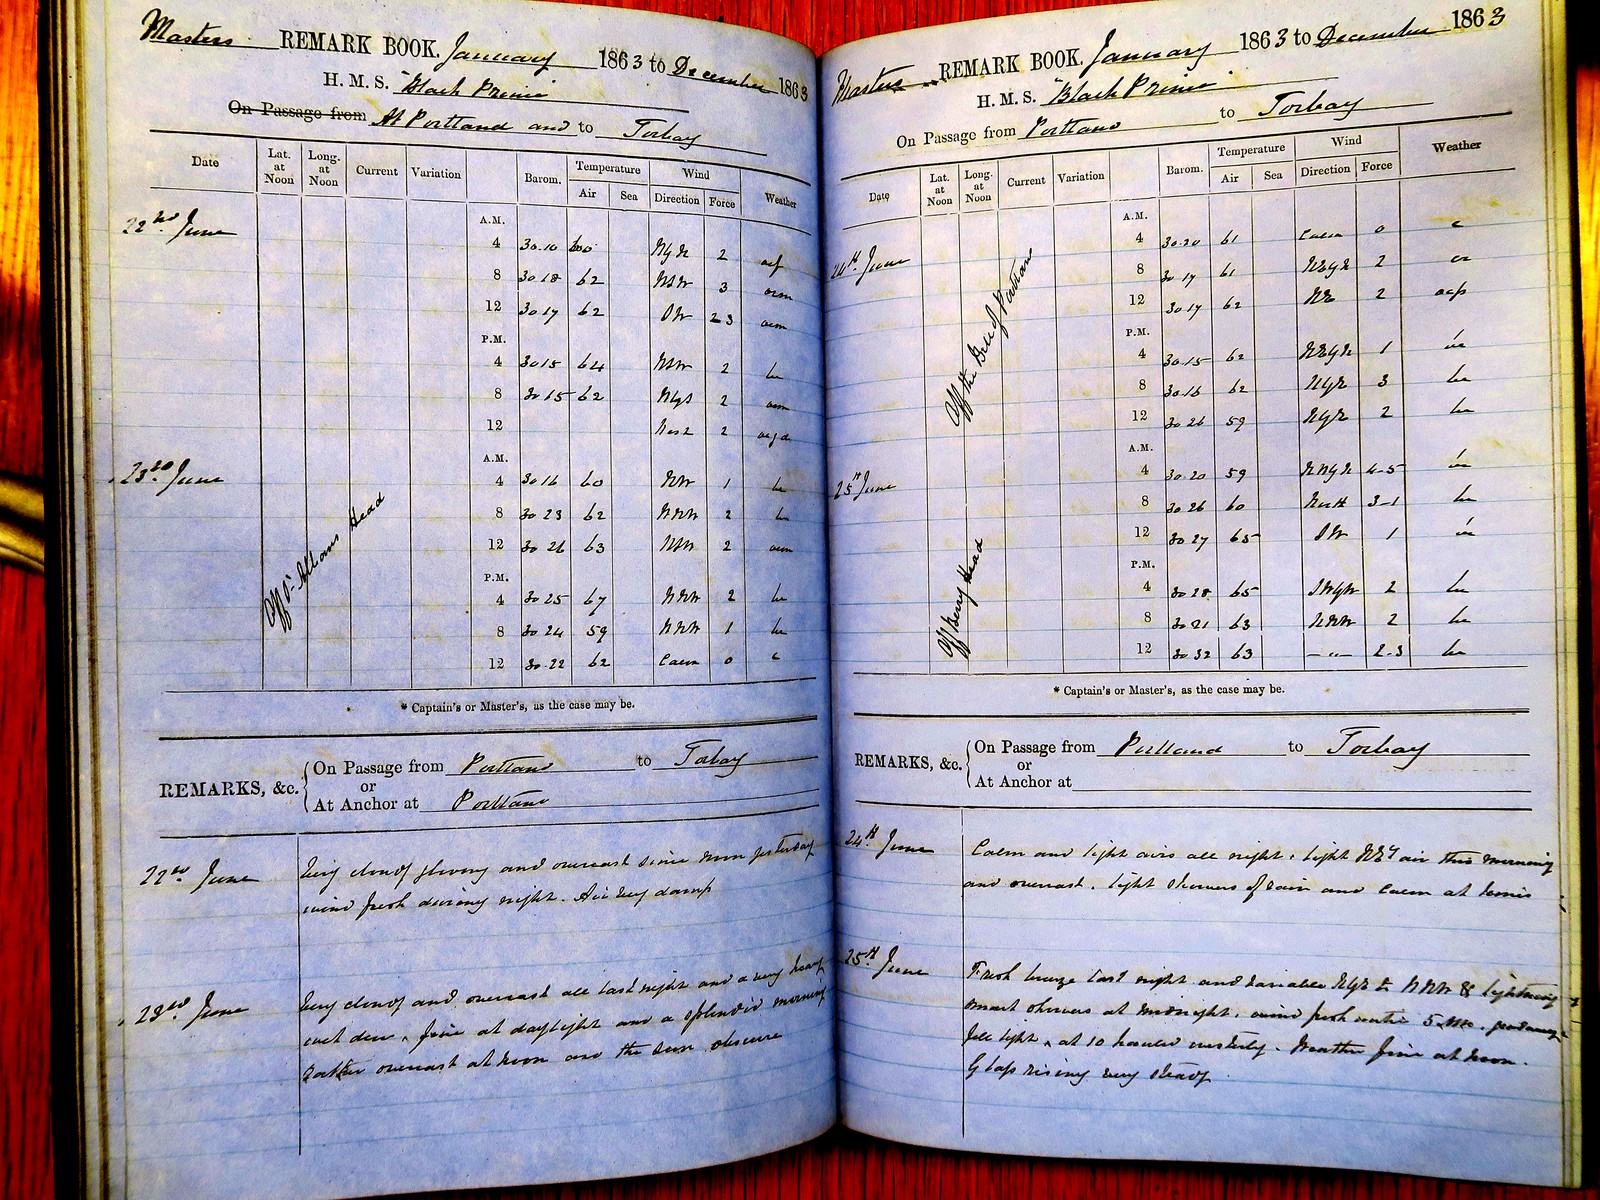 Masters REMARK BOOK. January 1863 to December 1863
H. M. S. "Black Prince"
On Passage from At Portland and to Torbay
Date Lat. at Noon Long. at Noon Current Variation Barom. Temperature Air Sea Wind Direction Force Weather
22nd June
A.M.
4 30.10 60 2
8 30 18 62 3
12 30 17 62 SW 2 3
P.M.
4 30 15 64 2
8 30 15 62 2
12 West 2
23rd June
A.M.
4 30 16 60 NW 1 bc
8 30 23 62 NNW 2 bc
12 30 26 63 2
P.M.
4 30 25 67 NNW 2 bc
8 30 24 59 NNW 1 bc
12 30.22 62 Calm 0 c
Off St. Albans Head
* Captain's or Master's, as the case may be.
REMARKS, &c. On Passage from Portland to Torbay
or
At Anchor at Portland
22nd June Very cloudy gloomy and overcast since noon yesterday
wind fresh during night. Air very damp
23rd June Very cloudy and overcast all last night and a very heavy
wet dew, fine at daylight and a splendid morning
rather overcast at noon and the sun obscure
Masters REMARK BOOK. January 1863 to December 1863
H. M. S. "Black Prince"
On Passage from Portland to Torbay
Date Lat. at Noon Long. at Noon Current Variation Barom. Temperature Air Sea Wind Direction Force Weather
24th June
A.M.
4 30.20 61 Calm 0 c
8 30 17 61 2
12 30 17 62 NE 2
P.M.
4 30.15 62 1
8 30.16 62 3 bc
12 30 26 59 2 bc
Off the Bill of Portland
25th June
A.M.
4 30 20 59 NNyN 4-5
8 30 26 60 North 3-1 bc
12 30 27 65 SW 1
P.M.
4 30 28 65 2 bc
8 30 21 63 NNW 2 bc
12 30 32 63 — " — 2-3 bc
Off Berry Head
* Captain's or Master's, as the case may be.
REMARKS, &c. On Passage from Portland to Torbay
or
At Anchor at
24th June Calm and light airs all night, light NEy air this morning
and overcast. light showers of rain and calm at times
25th June Fresh breeze last night and variable NyE to NNW & lightning
smart showers at midnight, wind fresh until 5
fell light, at 10 hauled westerly. Weather fine at noon.
Glass rising very steady